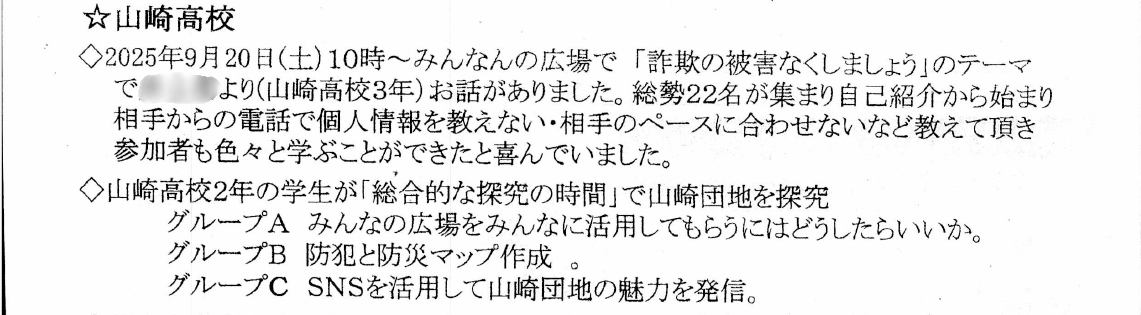 ☆山崎高校
◇2025年9月20日(土)10時～みんなんの広場で 「詐欺の被害なくしましょう」のテーマ
で より(山崎高校3年)お話がありました。総勢22名が集まり自己紹介から始まり
相手からの電話で個人情報を教えない・相手のペースに合わせないなど教えて頂き
参加者も色々と学ぶことができたと喜んでいました。
◇山崎高校2年の学生が「総合的な探究の時間」で山崎団地を探究
グループA みんなの広場をみんなに活用してもらうにはどうしたらいいか。
グループB 防犯と防災マップ作成 。
グループC SNSを活用して山崎団地の魅力を発信。